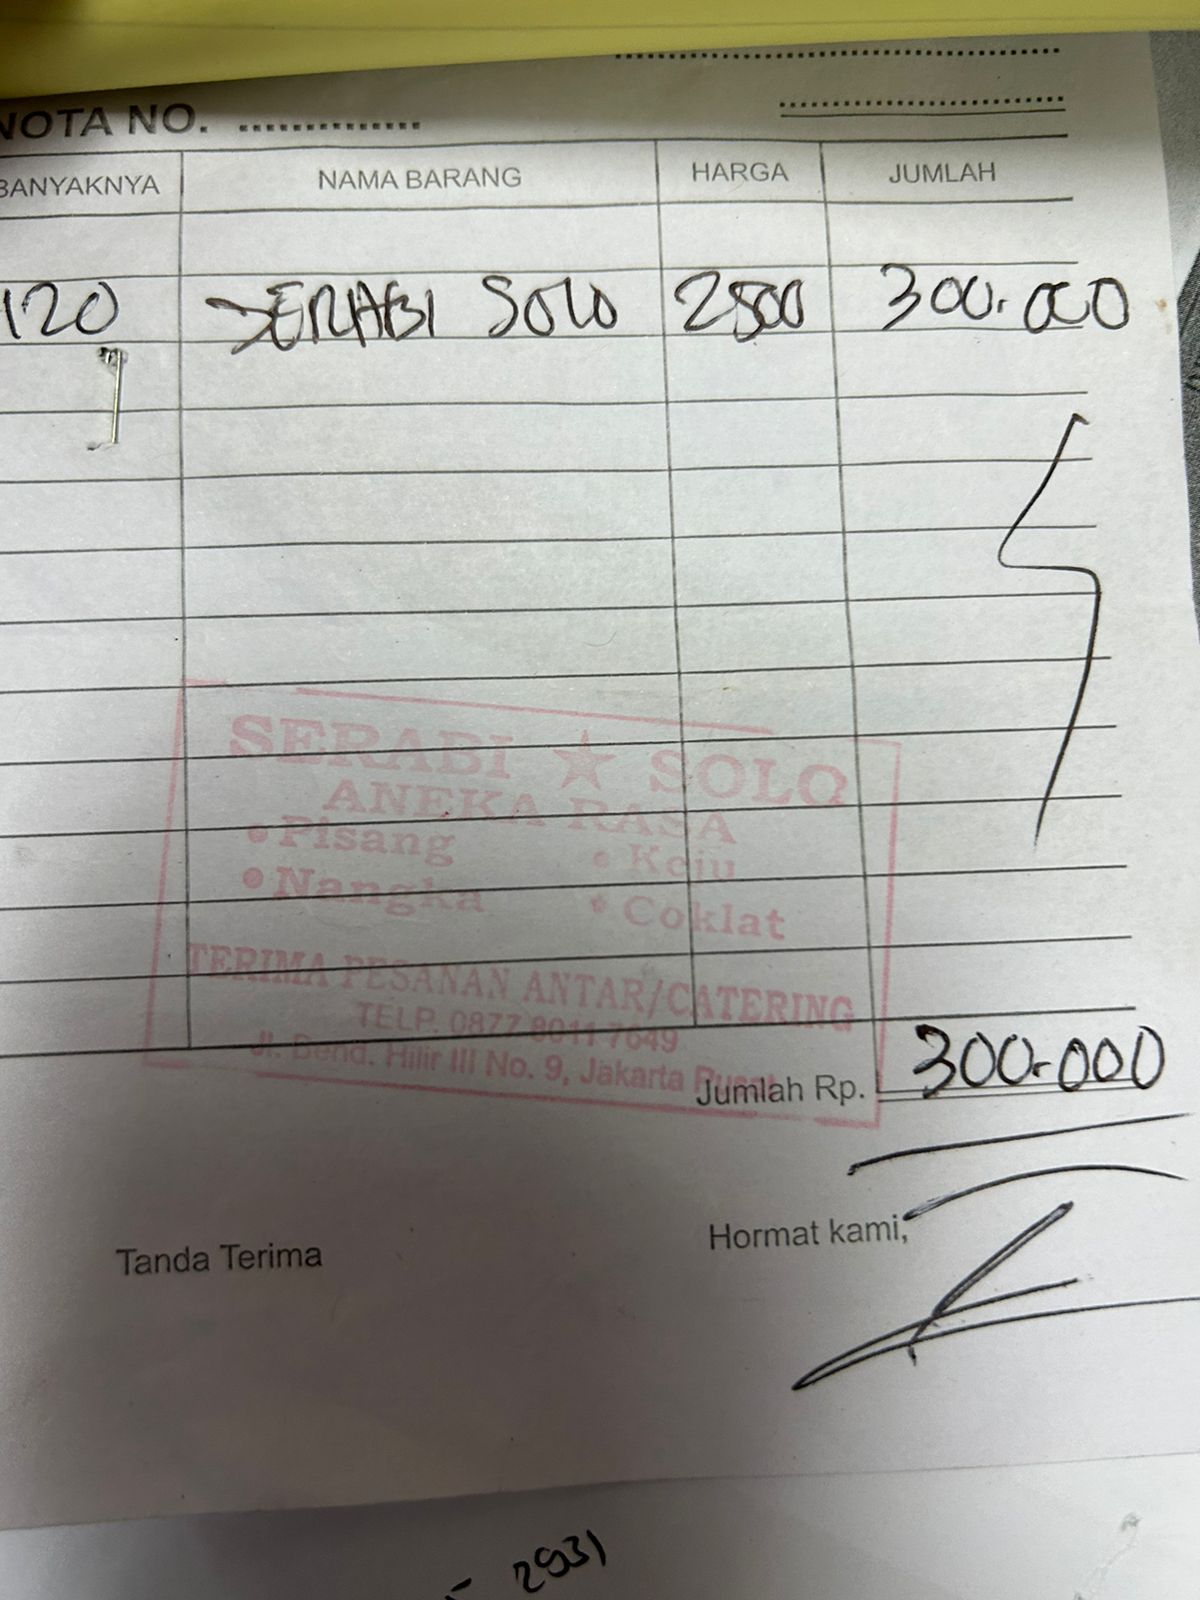 NOTA NO. ................
BANYAKNYA NAMA BARANG HARGA JUMLAH
120 SERABI SOLO 2500 300.000
SERABI ★ SOLO
ANEKA RASA
• Pisang • Keju
• Nangka • Coklat
TERIMA PESANAN ANTAR/CATERING
TELP. 0877 8011 7649
Jl. Bend. Hilir III No. 9, Jakarta Pusat
Jumlah Rp. 300.000
Tanda Terima Hormat kami,
2931